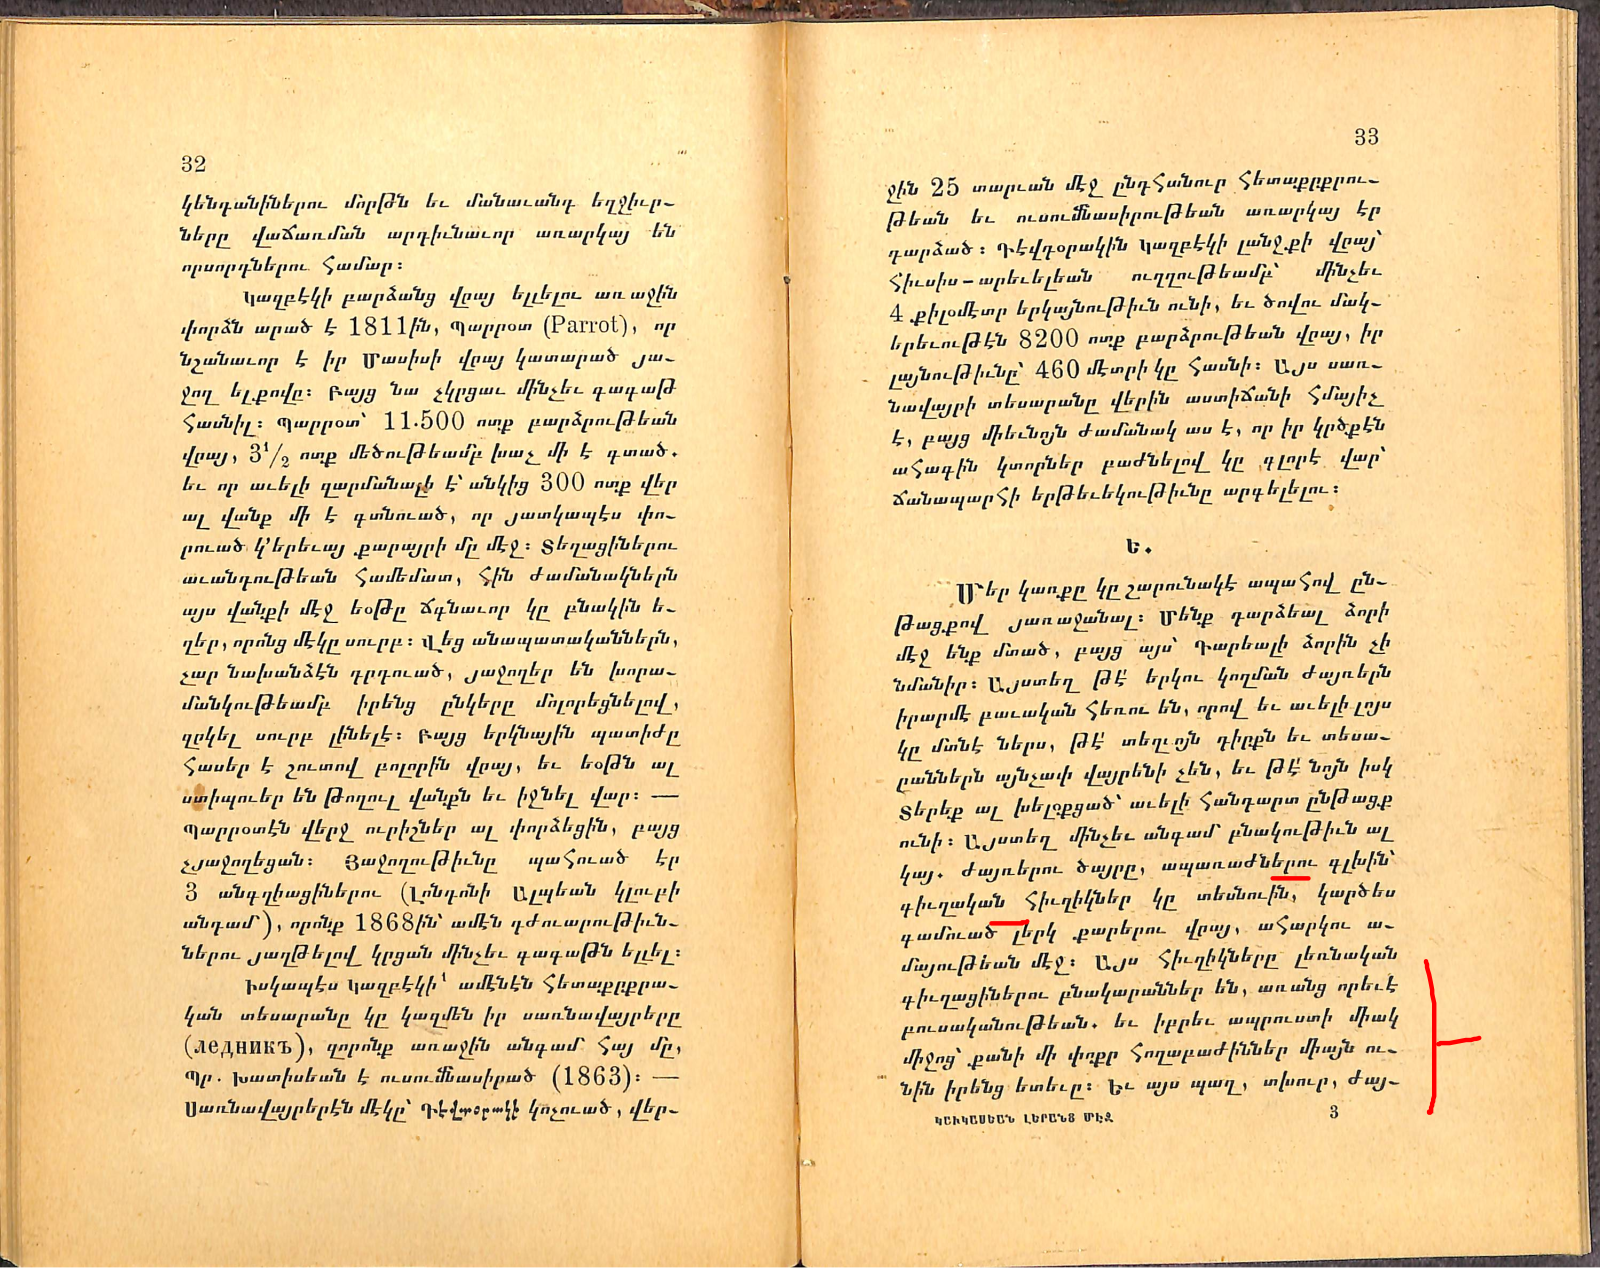 32
կենդանիներու մորթն եւ մանաւանդ եղջիւր-
ները վաճառման արդիւնաւոր առարկայ են
որսորդներու համար։
Կազբէկի բարձանց վրայ ելլելու առաջին
փորձն արած է 1811ին, Պարրօտ (Parrot), որ
նշանաւոր է իր Մասիսի վրայ կատարած յա-
ջող ելքովը։ Բայց նա չկրցաւ մինչեւ գագաթ
հասնիլ։ Պարրօտ՝ 11.500 ոտք բարձրութեան
վրայ, 3¹/₂ ոտք մեծութեամբ խաչ մի է գտած.
եւ որ աւելի զարմանալի է՝ անկից 300 ոտք վեր
ալ վանք մի է գտնուած, որ յատկապէս փո-
րուած կ՚երեւայ քարայրի մը մէջ։ Տեղացիներու
աւանդութեան համեմատ, հին ժամանակներն
այս վանքի մէջ եօթը ճգնաւոր կը բնակին ե-
ղեր, որոնց մէկը սուրբ։ Վեց անապատականներն,
չար նախանձէն դրդուած, յաջողեր են խորա-
մանկութեամբ իրենց ընկերը մոլորեցնելով,
զրկել սուրբ լինելէ։ Բայց երկնային պատիժը
հասեր է շուտով բոլորին վրայ, եւ եօթն ալ
ստիպուեր են թողուլ վանքն եւ իջնել վար։ —
Պարրօտէն վերջ ուրիշներ ալ փորձեցին, բայց
չյաջողեցան։ Յաջողութիւնը պահուած էր
3 անգղիացիներու (Լոնդոնի Ալպեան կլուբի
անդամ), որոնք 1868ին՝ ամէն դժուարութիւն-
ներու յաղթելով կրցան մինչեւ գագաթն ելլել։
Իսկապէս Կազբէկի՝ ամէնէն հետաքրքրա-
կան տեսարանը կը կազմեն իր սառնավայրերը
(ледникъ), զորոնք առաջին անգամ հայ մը,
Պր. Խատիսեան է ուսումնասիրած (1863)։ —
Սառնավայրերէն մէկը՝ Դէվդօրակի կոչուած, վեր-
33
ջին 25 տարւան մէջ ընդհանուր հետաքրքրու-
թեան եւ ուսումնասիրութեան առարկայ էր
դարձած։ Դէվդօրակին Կազբէկի լանջքի վրայ՝
հիւսիս-արեւելեան ուղղութեամբ՝ մինչեւ
4 քիլօմէտր երկայնութիւն ունի, եւ ծովու մակ-
երեւութէն 8200 ոտք բարձրութեան վրայ, իր
լայնութիւնը՝ 460 մէտրի կը հասնի։ Այս սառ-
նավայրի տեսարանը վերին աստիճանի հմայիչ
է, բայց միեւնոյն ժամանակ աս է, որ իր կրծքէն
ահագին կտորներ բաժնելով կը գլորէ վար՝
ճանապարհի երթեւեկութիւնը արգելելու։
Ե.
Մեր կառքը կը շարունակէ ապահով ըն-
թացքով յառաջանալ։ Մենք դարձեալ ձորի
մէջ ենք մտած, բայց այս՝ Դարեալի ձորին չի
նմանիր։ Այստեղ թէ՛ երկու կողման ժայռերն
իրարմէ բաւական հեռու են, որով եւ աւելի լոյս
կը մտնէ ներս, թէ՛ տեղւոյն դիրքն եւ տեսա-
րաններն այնչափ վայրենի չեն, եւ թէ՛ նոյն իսկ
Տերեք ալ խելօքցած՝ աւելի հանդարտ ընթացք
ունի։ Այստեղ մինչեւ անգամ բնակութիւն ալ
կայ. ժայռերու ծայրը, ապառաժներու գլխին՝
գիւղական հիւղիկներ կը տեսնուին, կարծես
գամուած լերկ քարերու վրայ, ահարկու ա-
մայութեան մէջ։ Այս հիւղիկները լեռնական
գիւղացիներու բնակարաններ են, առանց որեւէ
բուսականութեան. եւ իբրեւ ապրուստի միակ
միջոց՝ քանի մի փոքր հողաբաժիններ միայն ու-
նին իրենց ետեւը։ Եւ այս պաղ, տխուր, ժայ-
ԿԱՒԿԱՍԵԱՆ ԼԵՐԱՆՑ ՄԷՋ 3